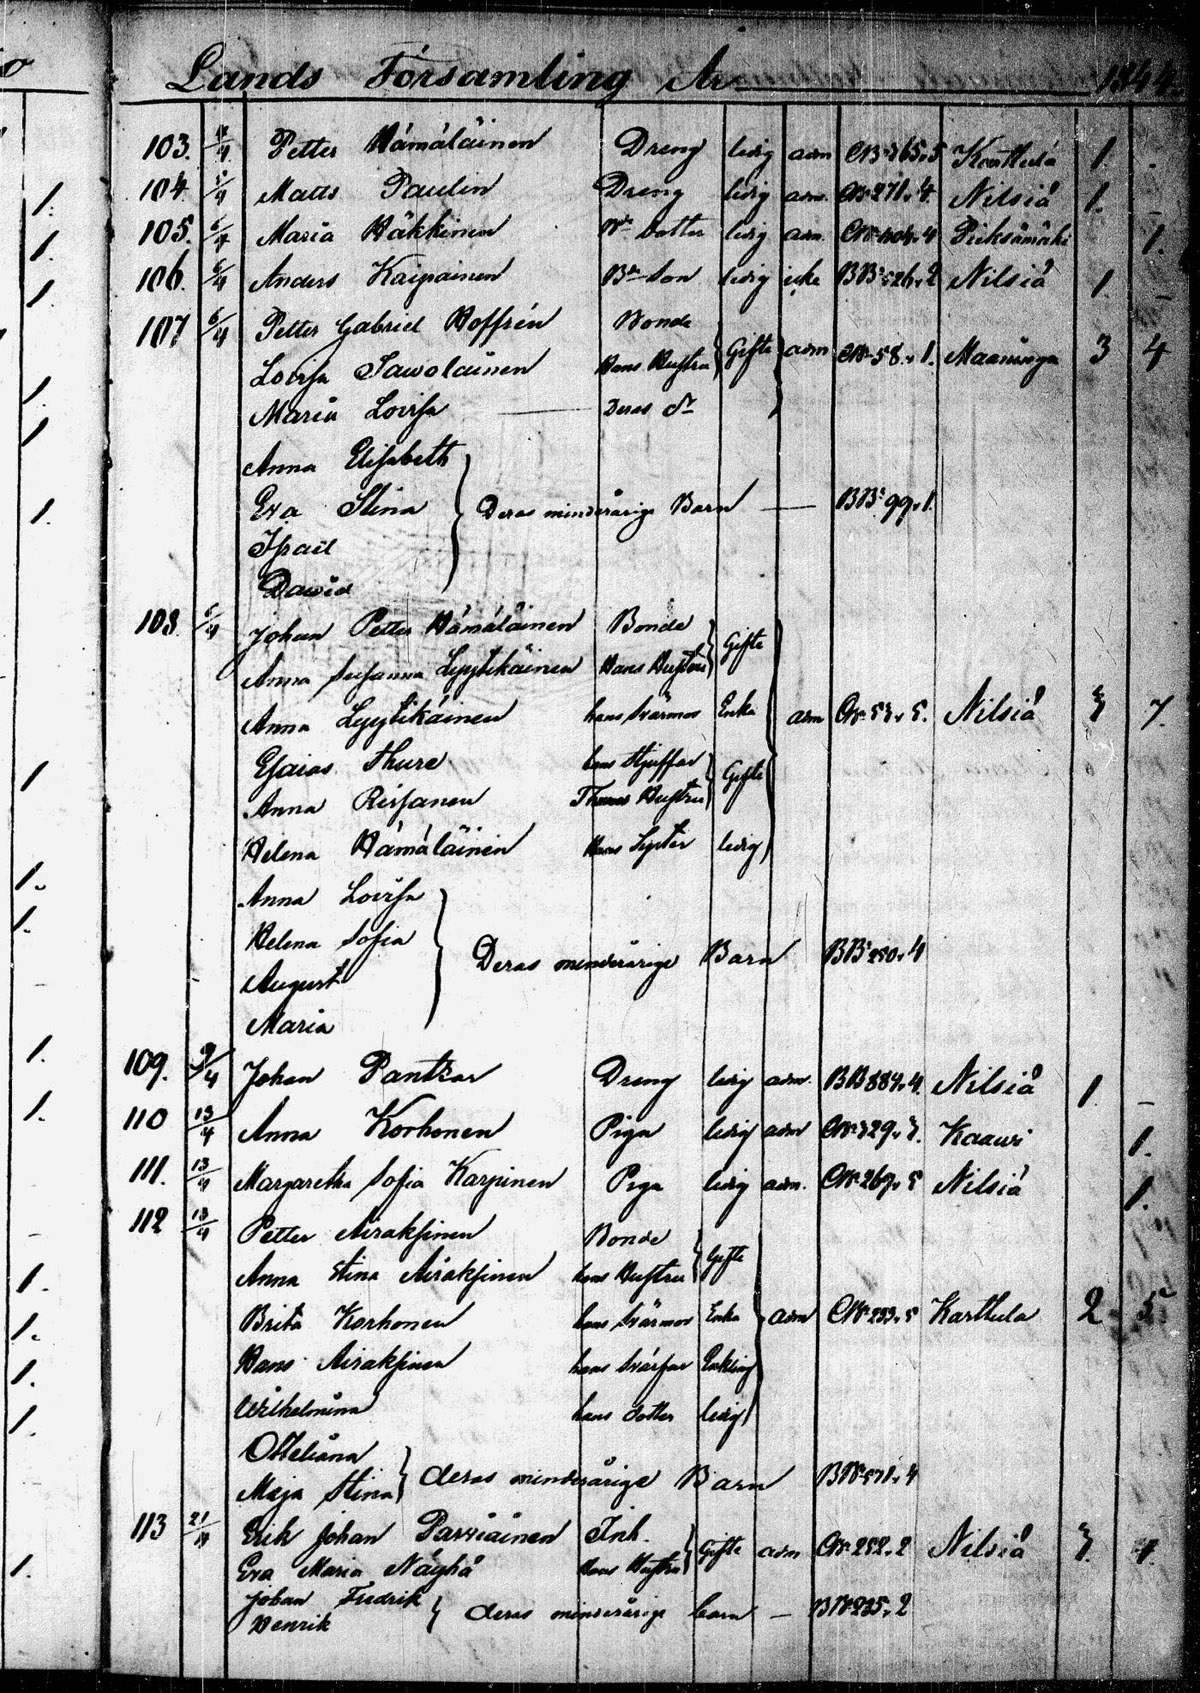 Lands Församling År 1844.
103. 4/4 Petter Hämäläinen Dreng ledig adm CB: 365,5 Karttula 1. -
104. 5/4 Matts Paulin Dreng ledig adm. CB: 271,4. Nilsiä 1. -
105. 6/4 Maria Häkkinen Bde dotter ledig adm. CB: 404,4 Pieksämäki 1.
106. 6/4 Anders Kaipainen Bde Son ledig icke BB: 526,2 Nilsiä 1. -
107 6/4 Petter Gabriel Hoffrén Bonde
Lovisa Sawolainen Hans Hustru Gifte adm CB: 58,1. Maaninga 3 4
Maria Lovisa Deras dr
Anna Elisabeth
Eva Stina Deras minderårige Barn BB: 99,1.
Israel
Dawid
108. 6/4 Johan Petter Hämäläinen Bonde
Anna Susanna Lyytikäinen Hans Hustru Gifte
Anna Lyytikäinen hans Svärmor Enka adm CB: 53,5. Nilsiä 3 7.
Esaias Thure hans Styffar Gifte
Anna Reisanen Thures Hustru
Helena Hämäläinen Hans Syster ledig
Anna Lovisa
Helena Sofia
August Deras minderårige Barn BB: 250,4
Maria
109. 9/4 Johan Pantzar Dreng ledig adm. BB 884,4. Nilsiä 1. -
110 13/4 Anna Korhonen Piga ledig adm CB: 329,3. Kaawi 1.
111. 13/4 Margaretha Sofia Karpinen Piga ledig adm. CB: 269,5 Nilsiä 1.
112 13/4 Petter Airaksinen Bonde
Anna Stina Airaksinen hans Hustru Gifte
Brita Korhonen hans Svärmor Enka adm CB: 233,5 Karttula 2 5
Hans Airaksinen hans Svärfar Enkling
Wilhelmina hans dotter ledig
Otteliana
Maja Stina deras minderårige Barn BB: 571,4
113 21/4 Erik Johan Parviainen Inh.
Eva Maria Näyhä Hans Hustru Gifte adm CB: 252,2 Nilsiä 3. 1.
Johan Fredrik
Henrik deras minderårige barn - BB: 235,2